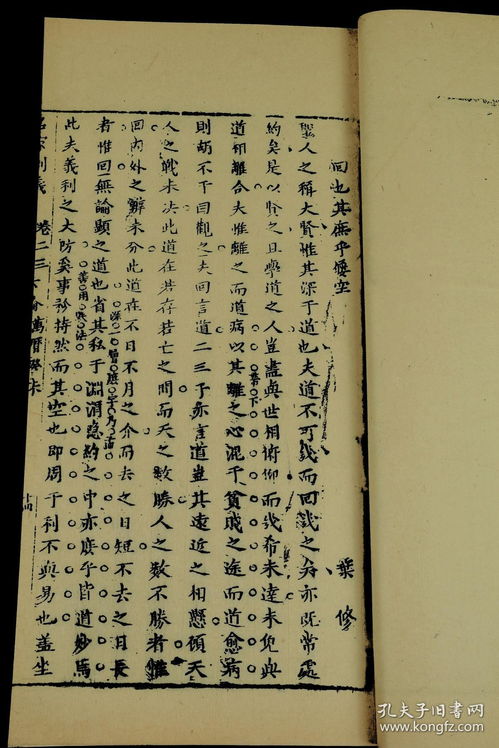 回也其庶乎屢空
葉修
聖人之稱大賢惟其深于道也夫道不可幾而回幾之矣亦既常處
約矣是以賢之且學道之人豈盡與世相俯仰而幾希未達未免與
道相離合夫惟離之而道病以其離之心混于貧賤之途而道愈病
則胡不于回觀之夫回言道二三子亦言道豈其遠近之相懸頓天
人之戰未決此道在若存若亡之間而天之數勝人之數不勝者雖
回內外之辭未分此道在不日不月之介而去之日短不去之日長
者惟回無論顯之道也省其私于淵涓慤約之中亦庶乎皆道妙焉
此夫義利之大防矣事於持然而其空也即周于利不與易也蓋坐
名家制義
卷二三
六分萬曆癸未
孔夫子旧书网
www.kongfz.com